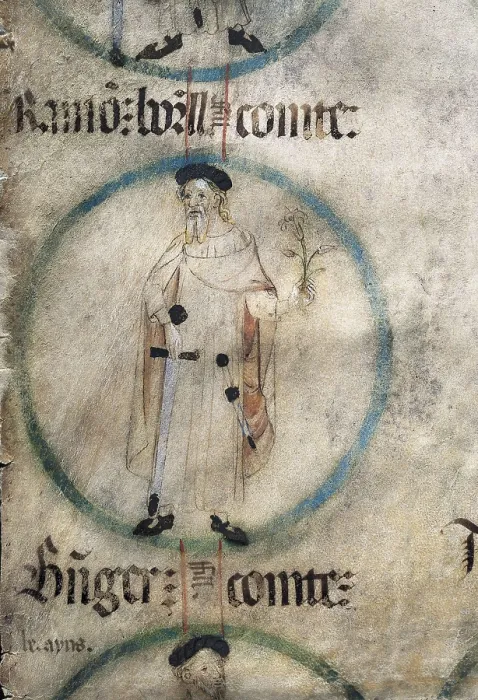 Ramō: borll comte:
Bn̄ger: comte:
lx. ayns.